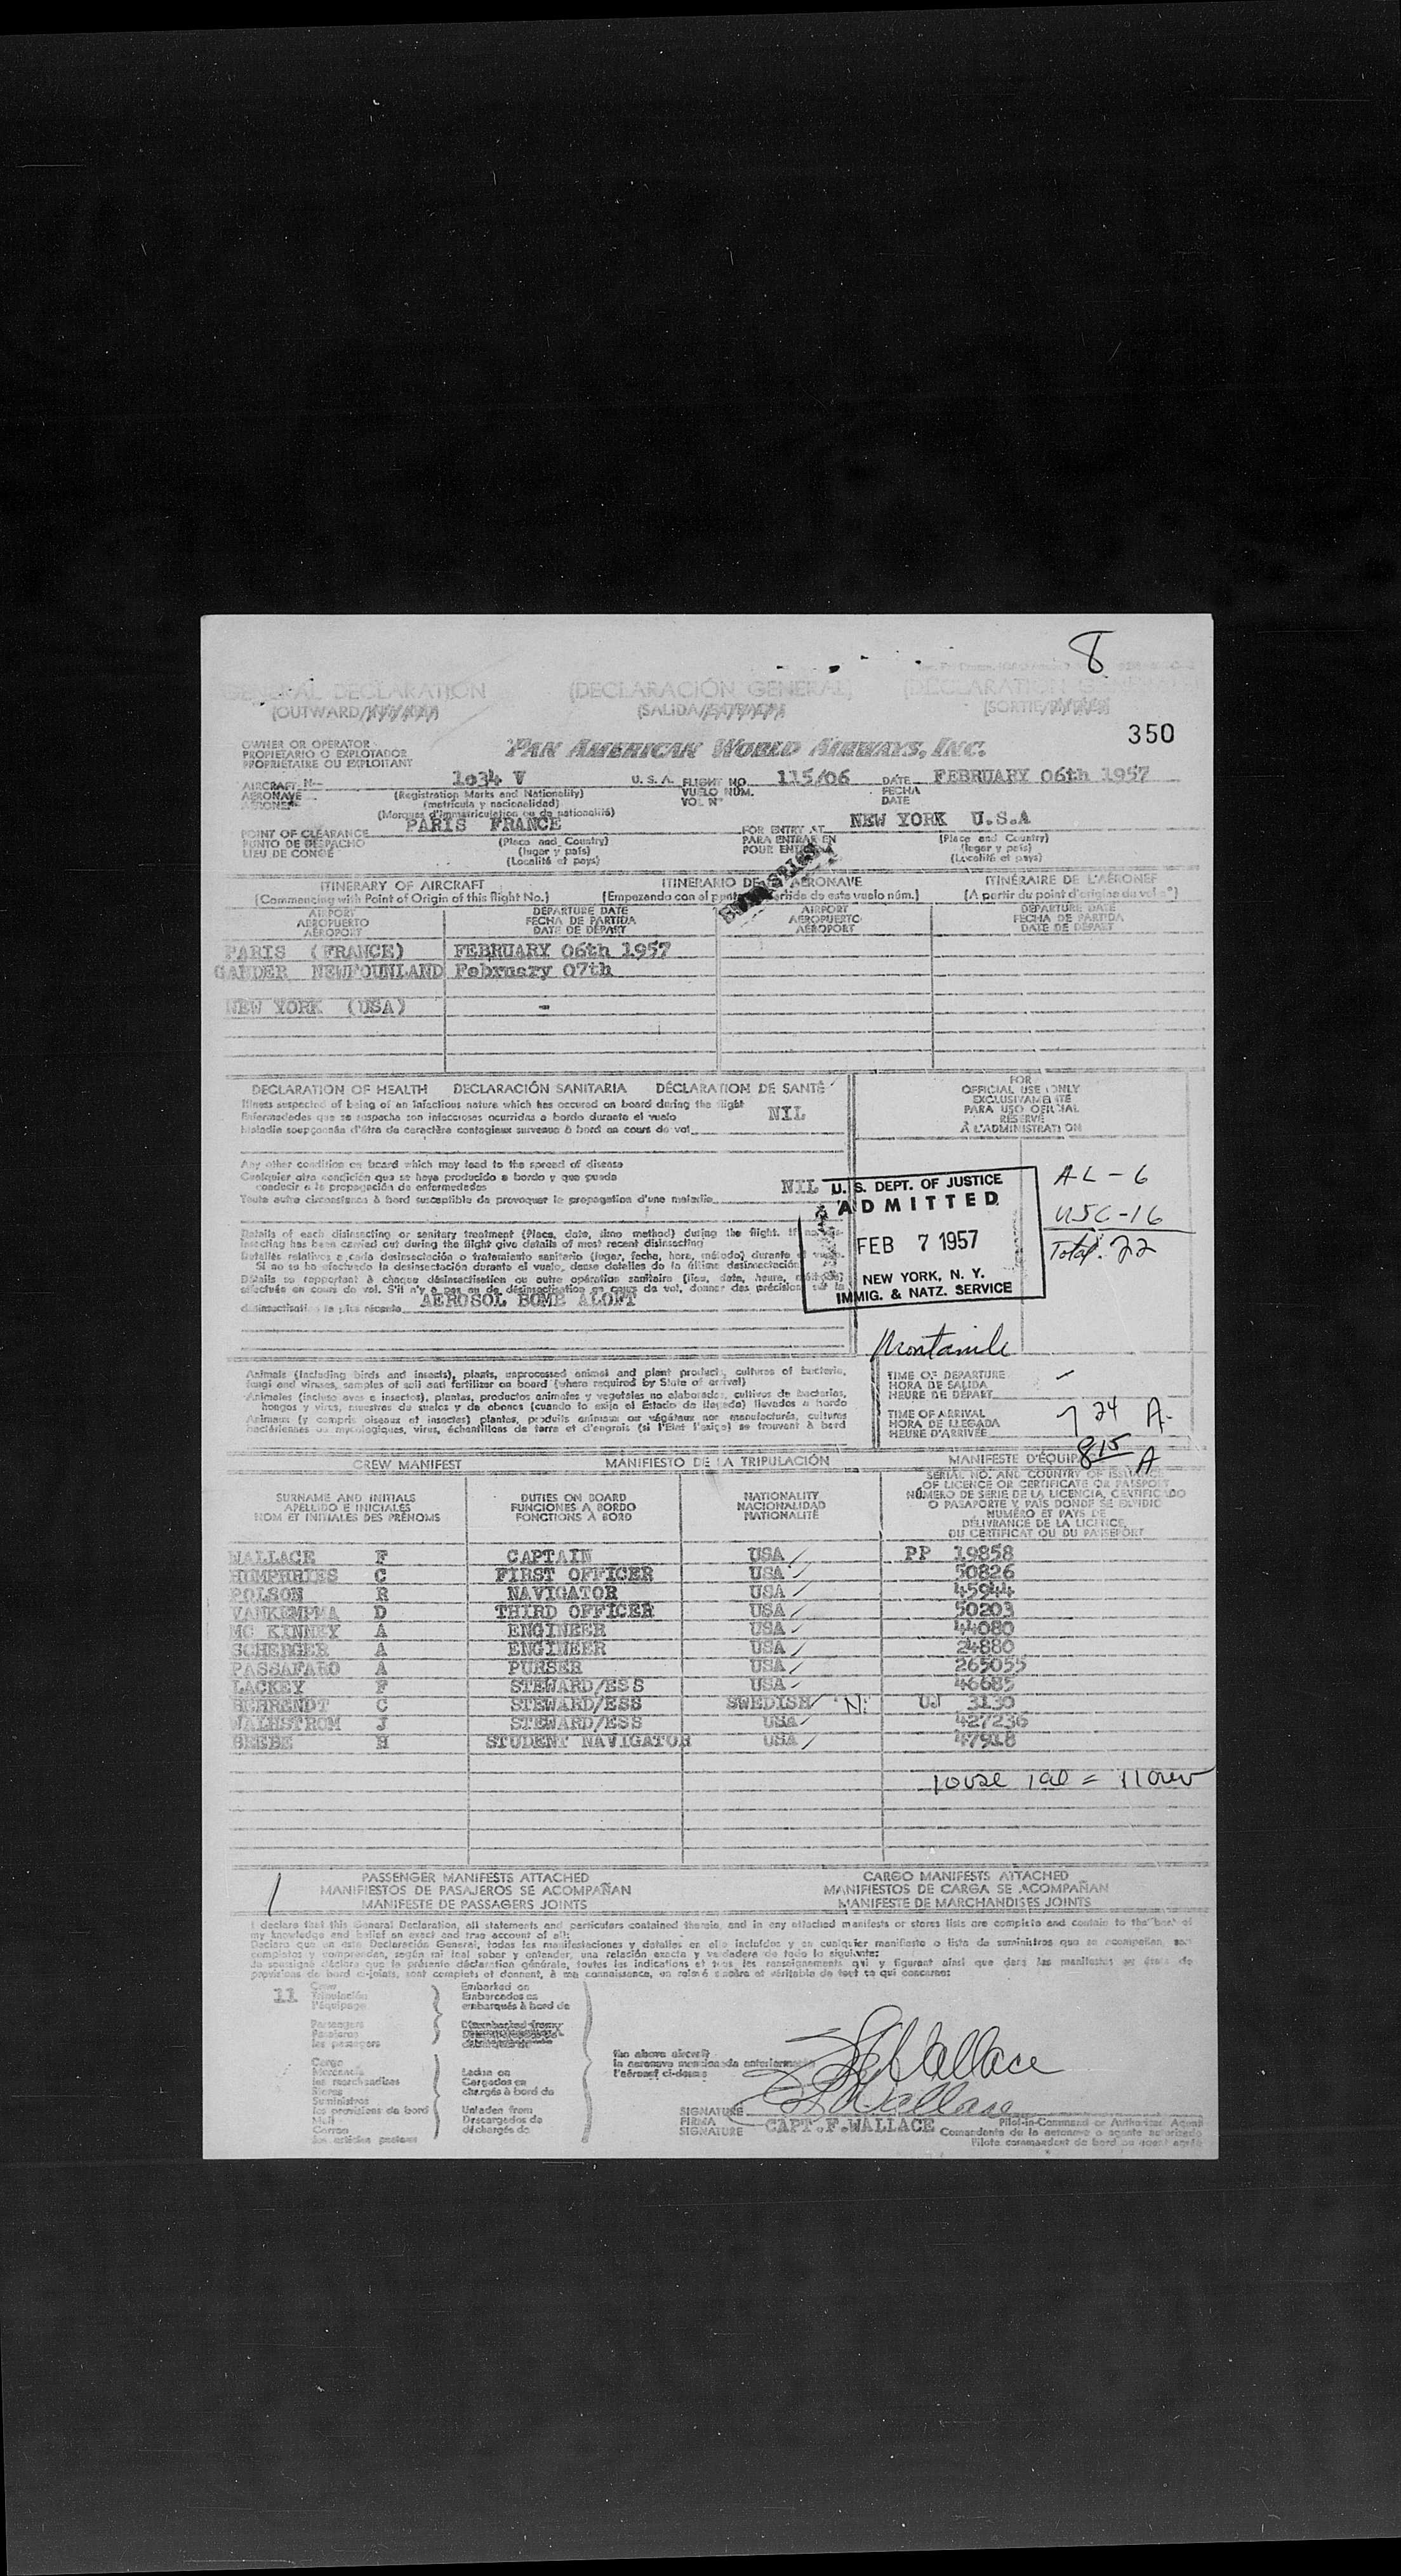 8
GENERAL DECLARATION (DECLARACIÓN GENERAL) (DECLARATION
(OUTWARD/ (SALIDA/ (SORTIE/
350
OWNER OR OPERATOR
PROPIETARIO O EXPLOTADOR
PROPRIETAIRE OU EXPLOITANT
PAN AMERICAN WORLD AIRWAYS, INC.
AIRCRAFT N— 1034 V U. S. A. FLIGHT NO. 115/06 DATE FEBRUARY 06th 1957
AERONAVE (Registration Marks and Nationality) VUELO NUM. FECHA
(matrícula y nacionalidad) VOL N° DATE
(Marques d'immatriculation ou de nationalité)
POINT OF CLEARANCE PARIS FRANCE FOR ENTRY AT NEW YORK U.S.A
PUNTO DE DESPACHO (Place and Country) PARA ENTRAR EN (Place and Country)
LIEU DE CONGÉ (lugar y país) POUR (lugar y país)
(Localité et pays) (Localité et pays)
ITINERARY OF AIRCRAFT ITINERARIO DE AERONAVE ITINÉRAIRE DE L'AÉRONEF
(Commencing with Point of Origin of this flight No.) (Empezando con el de este vuelo núm.) (A partir du point d'origine du vol n°)
AIRPORT DEPARTURE DATE AIRPORT DEPARTURE DATE
AEROPUERTO FECHA DE PARTIDA AEROPUERTO FECHA DE PARTIDA
AÉROPORT DATE DE DÉPART AÉROPORT DATE DE DÉPART
PARIS (FRANCE) FEBRUARY 06th 1957
GANDER NEWFOUNLAND February 07th
NEW YORK (USA) -
DECLARATION OF HEALTH DECLARACIÓN SANITARIA DÉCLARATION DE SANTÉ
FOR
OFFICIAL USE ONLY
EXCLUSIVAMENTE
PARA USO OFICIAL
RÉSERVÉ
À L'ADMINISTRATION
Illness suspected of being of an infectious nature which has occured on board during the flight
Enfermedades que se sospecha son infecciosas ocurridas a bordo durante el vuelo NIL
Maladie soupçonnée d'être de caractère contagieux survenue à bord en cours de vol
Any other condition on board which may lead to the spread of disease
Cualquier otra condición que se haya producido a bordo y que pueda
conducir a la propagación de enfermedades NIL
Toute autre circonstance à bord susceptible de provoquer la propagation d'une maladie
U. S. DEPT. OF JUSTICE
ADMITTED
FEB 7 1957
NEW YORK, N. Y.
IMMIG. & NATZ. SERVICE
AL-6
USC-16
Total. 22
Details of each disinsecting or sanitary treatment (Place, date, time method) during the flight. If no
insecting has been carried out during the flight give details of most recent disinsecting
Detalles relativos a cada desinsectación o tratamiento sanitario (lugar, fecha, hora, método) durante el vuelo.
Si no se ha efectuado la desinsectación durante el vuelo, dense detalles de la última desinsectación
Détails se rapportant à chaque désinsectisation ou autre opération sanitaire (lieu, date, heure, méthode)
effectués en cours de vol. S'il n'y a pas eu de désinsectisation en cours de vol, donner des précisions sur la
désinsectisation la plus récente AEROSOL BOMB ALOFT
Animals (including birds and insects), plants, unprocessed animal and plant products, cultures of bacteria,
fungi and viruses, samples of soil and fertilizer on board (where required by State of arrival)
Animales (incluso aves e insectos), plantas, productos animales y vegetales no elaborados, cultivos de bacterias,
hongos y virus, muestras de suelos y de abonos (cuando lo exija el Estado de llegada) llevados a bordo
Animaux (y compris oiseaux et insectes) plantes, produits animaux ou végétaux non manufacturés, cultures
bactériennes ou mycologiques, virus, échantillons de terre et d'engrais (si l'Etat l'exige) se trouvant à bord
TIME OF DEPARTURE
HORA DE SALIDA
HEURE DE DÉPART
TIME OF ARRIVAL 7 24 A
HORA DE LLEGADA
HEURE D'ARRIVÉE
815 A
CREW MANIFEST MANIFIESTO DE LA TRIPULACIÓN MANIFESTE D'ÉQUIP
SURNAME AND INITIALS DUTIES ON BOARD NATIONALITY SERIAL NO. AND COUNTRY OF ISSUANCE
APELLIDO E INICIALES FUNCIONES A BORDO NACIONALIDAD OF LICENCE OR CERTIFICATE OR PASSPORT
NOM ET INITIALES DES PRÉNOMS FONCTIONS À BORD NATIONALITÉ NÚMERO DE SERIE DE LA LICENCIA, CERTIFICADO
O PASAPORTE Y PAÍS DONDE SE EXPIDIÓ
NUMÉRO ET PAYS DE
DÉLIVRANCE DE LA LICENCE,
DU CERTIFICAT OU DU PASSEPORT
WALLACE F CAPTAIN USA PP 19858
HUMPHRIES C FIRST OFFICER USA 50826
POLSON R NAVIGATOR USA 45944
VANKEMPMA D THIRD OFFICER USA 50203
MC KINNEY A ENGINEER USA 44080
SCHERGER A ENGINEER USA 24880
PASSAFARO A PURSER USA 265055
LACKEY F STEWARD/ESS USA 46685
BEHRENDT C STEWARD/ESS SWEDISH Ni UJ 3130
WALHSTROM J STEWARD/ESS USA 427236
BEEBE H STUDENT NAVIGATOR USA 47918
10 USC 1 al = 11 crew
PASSENGER MANIFESTS ATTACHED CARGO MANIFESTS ATTACHED
MANIFIESTOS DE PASAJEROS SE ACOMPAÑAN MANIFIESTOS DE CARGA SE ACOMPAÑAN
MANIFESTE DE PASSAGERS JOINTS MANIFESTE DE MARCHANDISES JOINTS
I declare that this General Declaration, all statements and particulars contained therein, and in any attached manifests or stores lists are complete and contain to the best of
my knowledge and belief an exact and true account of all:
Declaro que en esta Declaración General, todas las manifestaciones y detalles en ella incluidos y en cualquier manifiesto o lista de suministros que se acompañan, son
completos y comprenden, según mi leal saber y entender, una relación exacta y verdadera de todo lo siguiente:
Je soussigné déclare que la présente déclaration générale, toutes les indications et tous les renseignements qui y figurent ainsi que dans les manifestes en états de
provisions de bord ci-joints, sont complets et donnent, à ma connaissance, un relevé sincère et véritable de tout ce qui concerne:
11 Crew Embarked on
Tripulación Embarcados en
l'équipage embarqués à bord de
Passengers Disembarked from
Pasajeros
les passagers
the above aircraft
la aeronave mencionada anteriormente
l'aéronef ci-dessus
Cargo
Mercancía Laden on
les marchandises Cargados en
Stores chargés à bord de
Suministros
les provisions de bord Unladen from
Mail Descargados de
Correo déchargés de
les articles postaux
F Wallace
F Wallace
SIGNATURE
FIRMA CAPT.F.WALLACE
SIGNATURE
Pilot-in-Command or Authorized Agent
Comandante de la aeronave o agente autorizado
Pilote commandant de bord ou agent agréé